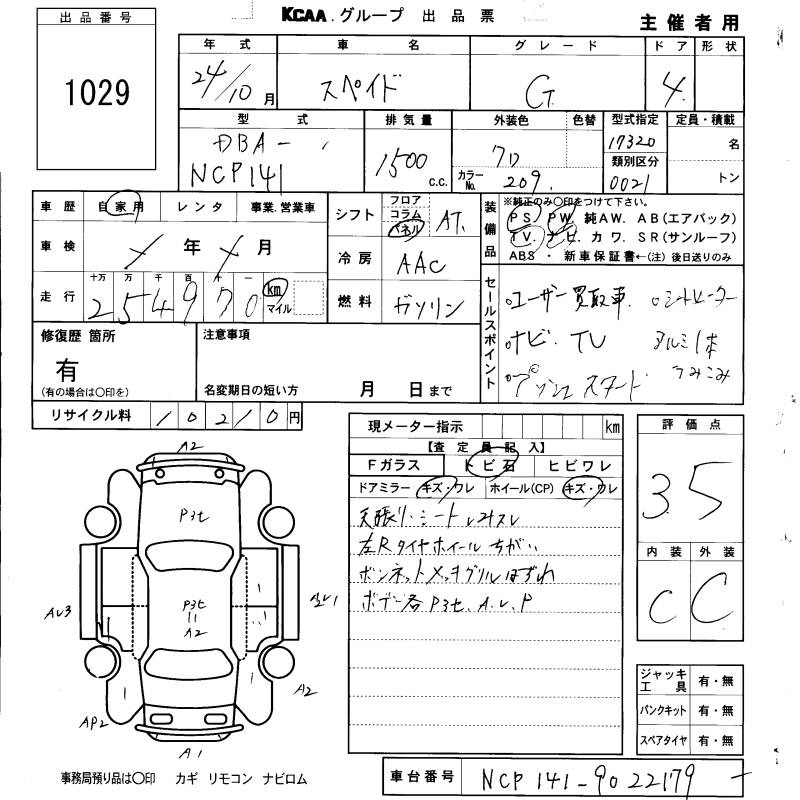 出品番号
1029
KCAA.グループ 出品票
主催者用
年式 車名 グレード ドア 形状
24/10月 スペイド G 4
型式 排気量 外装色 色替 型式指定 定員・積載
DBA- NCP141
1500 c.c.
ワロ
カラーNo. 209
17320
類別区分
0021
名
トン
車歴 自家用 レンタ 事業.営業車
シフト フロア コラム パネル AT.
装備品 ※純正のみ〇印をつけて下さい。
PS PW 純AW. AB(エアバック)
TV. ナビ. カワ. SR(サンルーフ)
ABS ・ 新車保証書←(注) 後日送りのみ
車検 年 月
冷房 AAC
走行 十万 万 千 百 十 一
254970 km マイル
燃料 ガソリン
セールスポイント
ユーザー買取車. シートヒーター
ナビ. TV アルミ1本
プッシュスタード つみこみ
修復歴 箇所
有
(有の場合は〇印を)
注意事項
名変期日の短い方 月 日まで
リサイクル料 10210円
現メーター指示 km
【査定員記入】
Fガラス トビ石 ヒビワレ
ドアミラー キズ・ワレ ホイール(CP) キズ・ワレ
天張り.シート
左Rタイヤホイール ちがい
ボンネットメッキグリル はずれ
ボデー各 P3セ. A. レ. P
評価点
3.5
内装 外装
C C
ジャッキ工具 有・無
パンクキット 有・無
スペアタイヤ 有・無
A2
P3セ
P3セ
A2
Aレ3
A2
AP2
A1
事務局預り品は〇印 カギ リモコン ナビロム
車台番号 NCP141-9022179